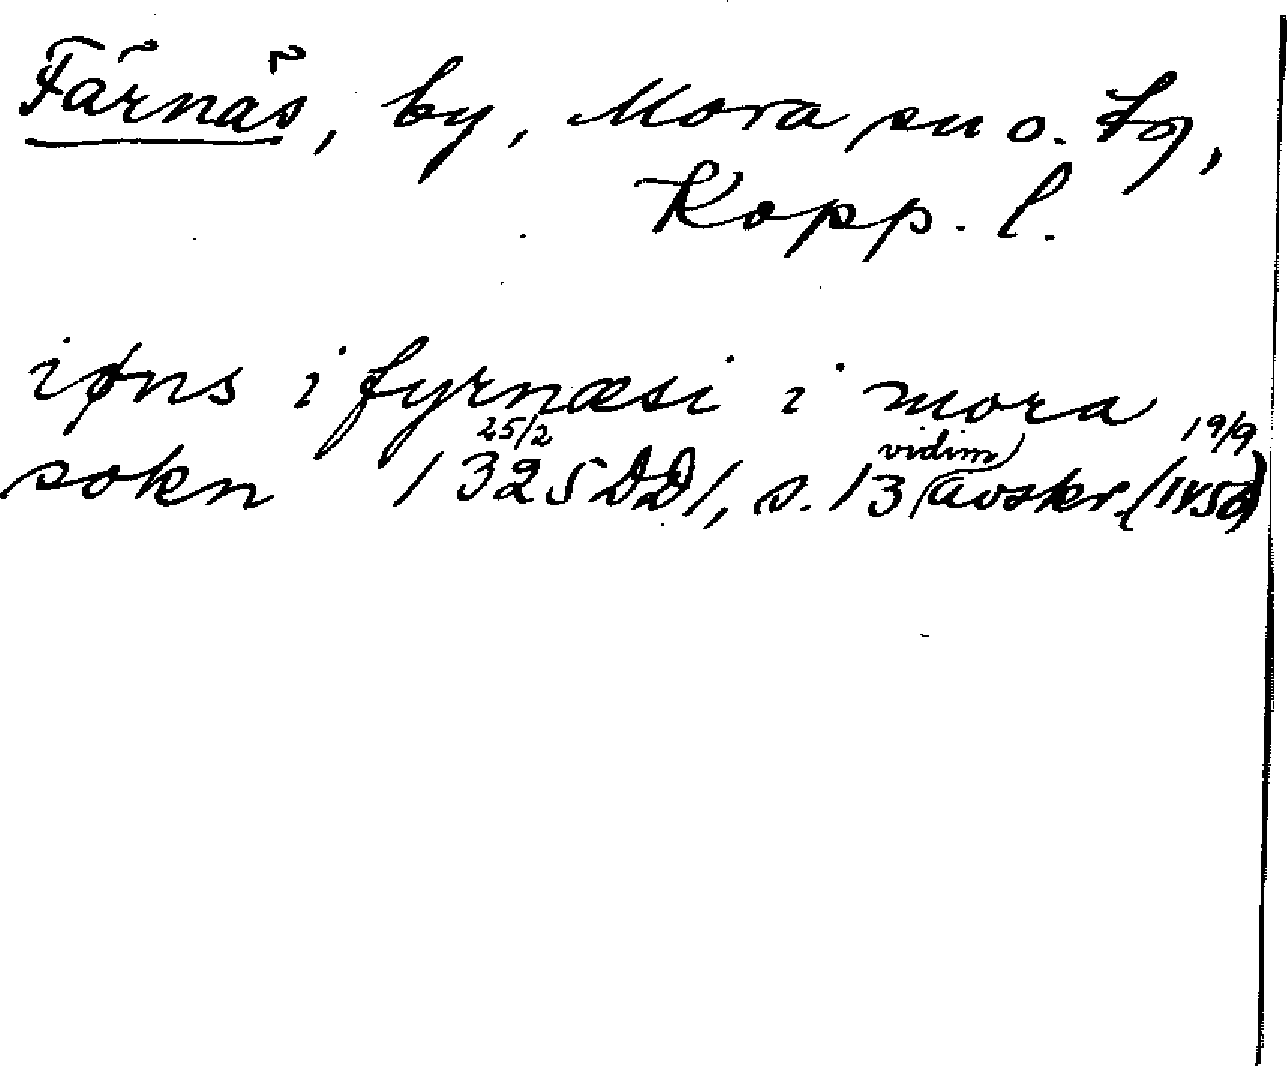 Färnäs, by, Mora sn o. tg,
Kopp. l.
iøns i fyrnæsi i mora
sokn 25/2 1325 DD 1, s. 13 (vidim) avskr. (19/9 1450)